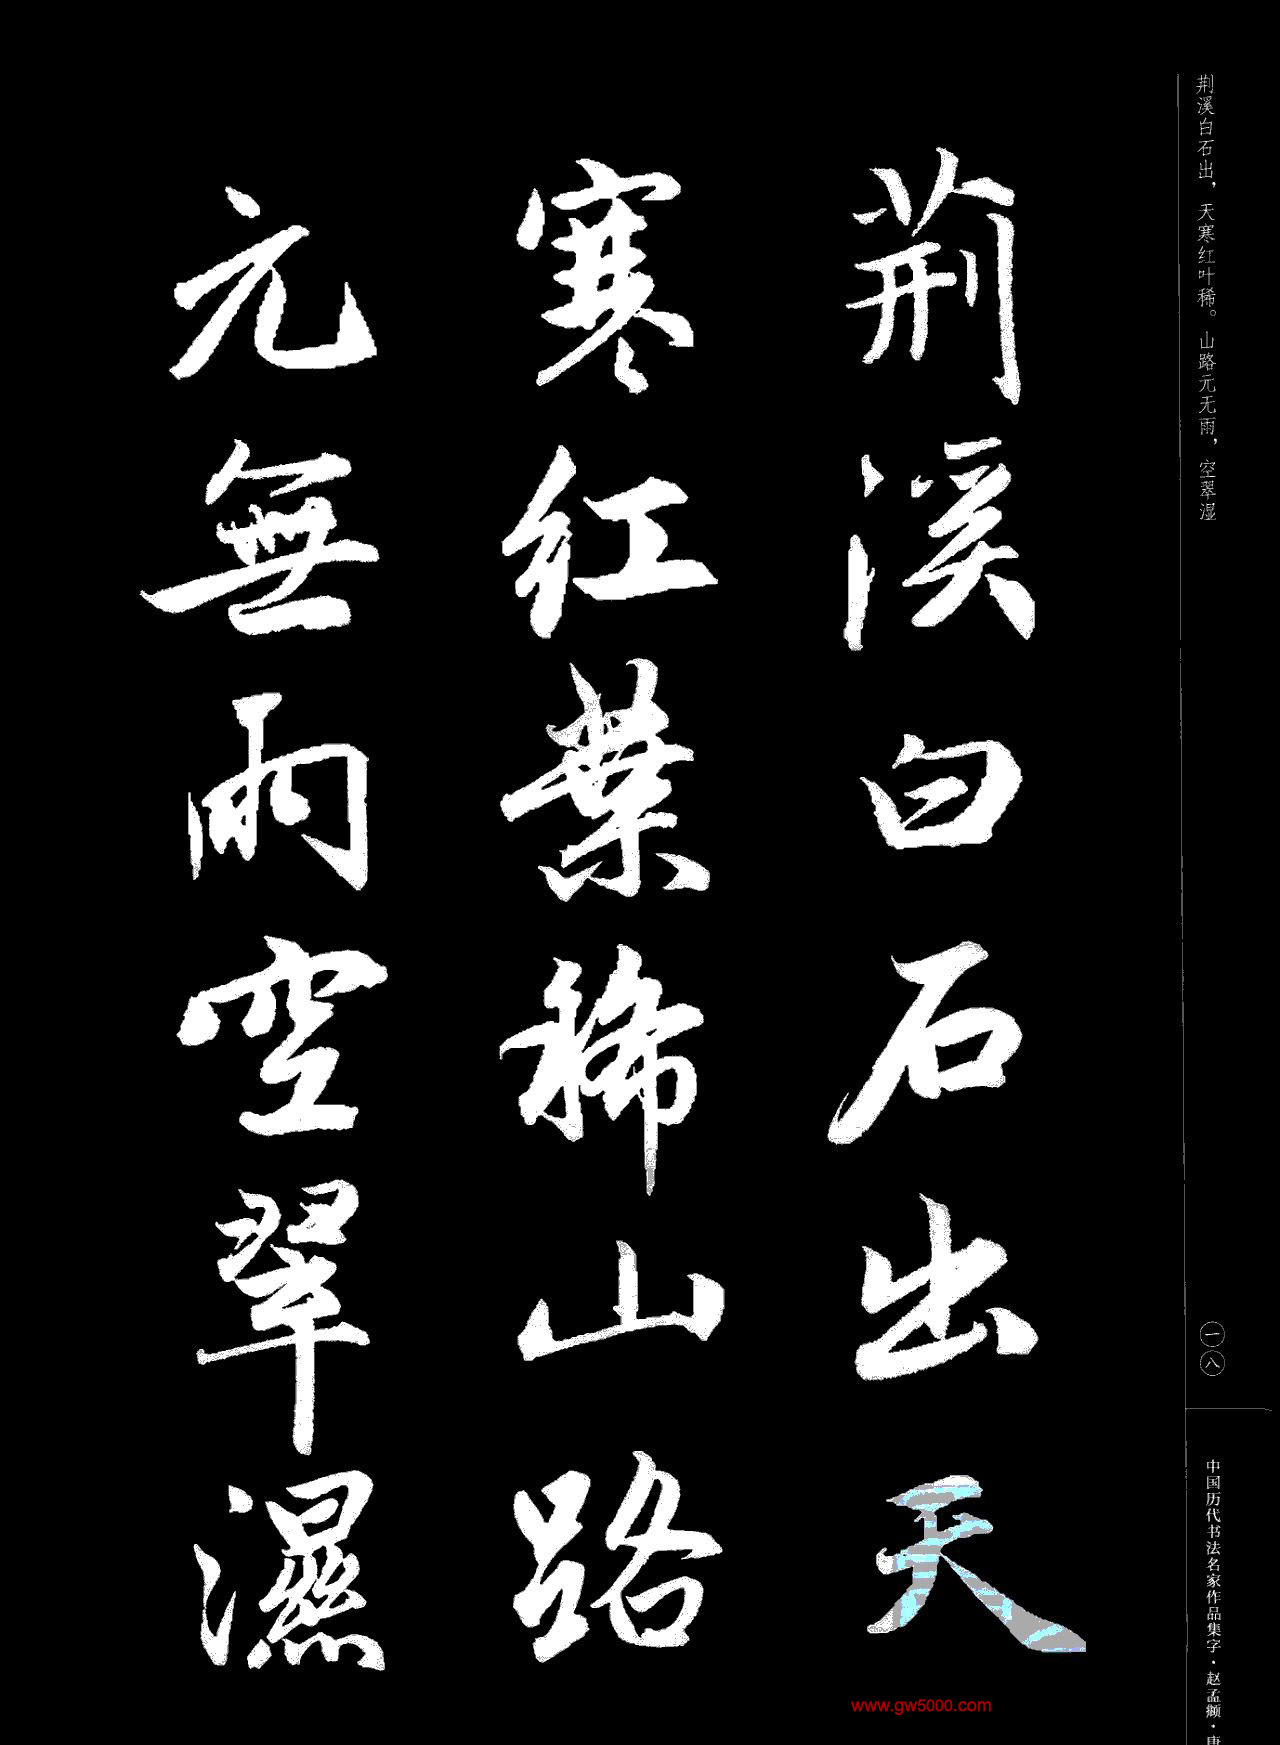 荆溪白石出，天寒红叶稀。山路元无雨，空翠湿
荊溪白石出天
寒紅葉稀山路
元無雨空翠濕
一八
中国历代书法名家作品集字·赵孟頫·唐
www.gw5000.com